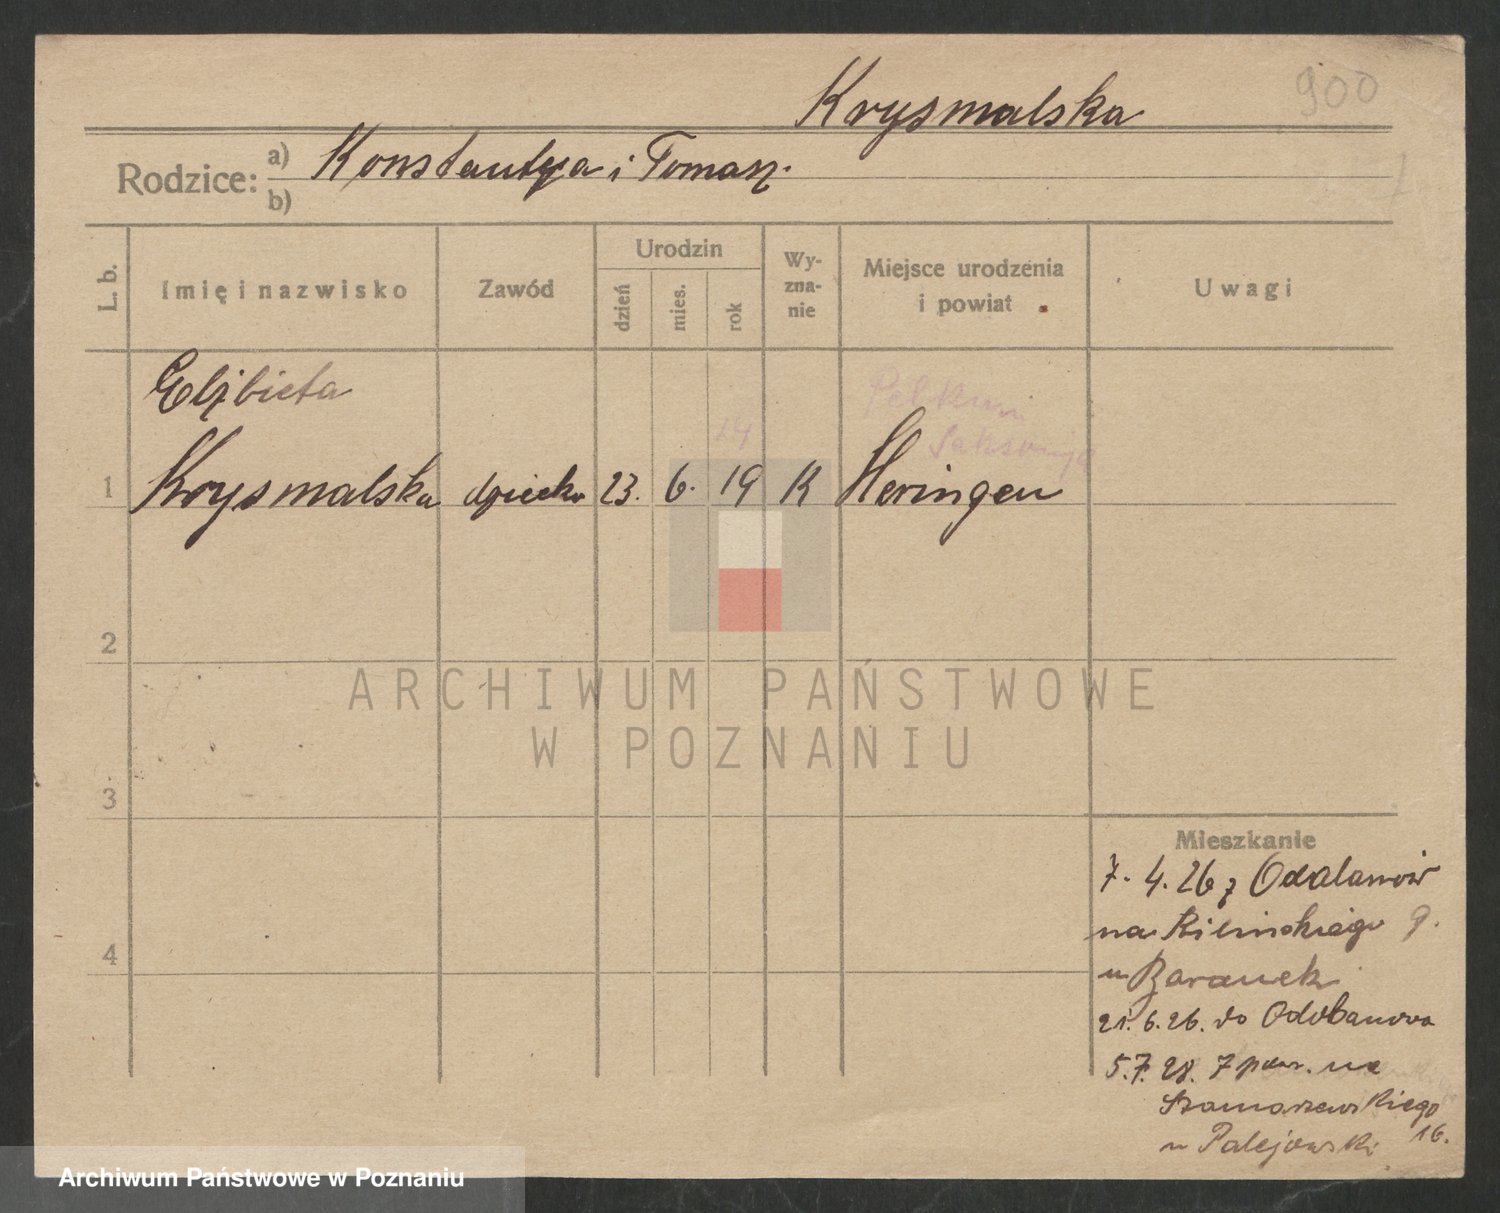 Krysmalska
900
Rodzice:
a) Konstantya i Tomasz.
b)
L. b.
Imię i nazwisko
Zawód
Urodzin
dzień
mies.
rok
Wy-
zna-
nie
Miejsce urodzenia
i powiat
Uwagi
Elżbieta
14
Saksonja
1 Krysmalska dziecko 23. 6. 19 K Heringen
2
ARCHIWUM PAŃSTWOWE
W POZNANIU
3
Mieszkanie
7. 4. 26 z Odalanów
na Kilinskiego 9.
4
u Baranek
21. 6. 26. do Odolanowa
5. 7. 28. z pow. na
Szamarzewskiego
16.
u Palejowski
Archiwum Państwowe w Poznaniu